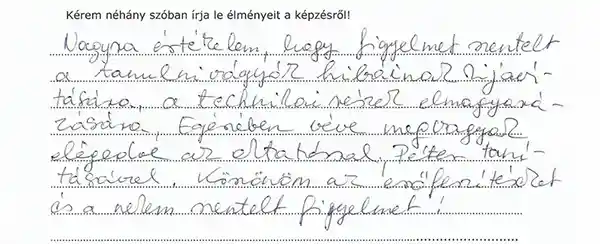 Kérem néhány szóban írja le élményeit a képzésről!
Nagyra értékelem, hogy figyelmet szentelt
a tanulni vágyók hibáinak kijaví-
tására, a technikai részek elmagyará-
zására. Egészében véve megvagyok
elégedve az oktatással, Péter taní-
tásával. Köszönöm az erőfeszítéseket
és a nekem szentelt figyelmet!